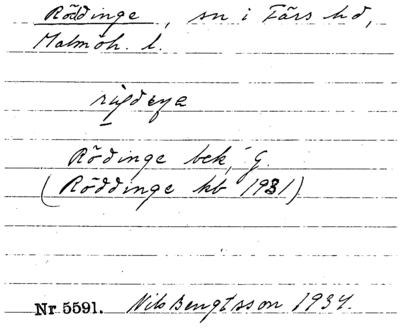 Röddinge, sn i Färs hd,
Malmöh. l.
Rödinge bek, G.
(Röddinge kb 1931)
Nr 5591. Nils Bengtsson 1934.